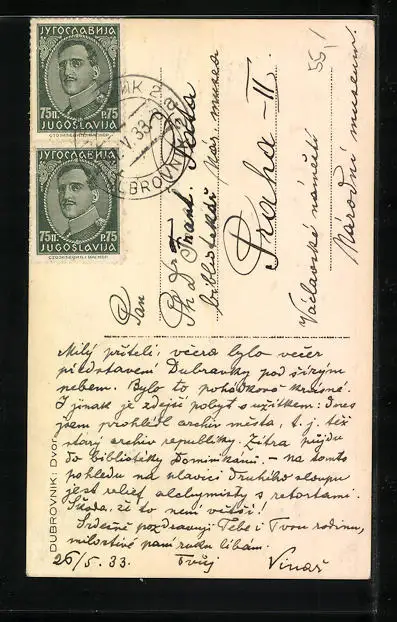 ЈУГОСЛАВИЈА
75п. P.75
JUGOSLAVIJA
ЈУГОСЛАВИЈА
75п. P.75
JUGOSLAVIJA
DUBROVNIK 2
V. 33
DUBROVNIK 2
55,-
Pan
PhDr Frant.
bibliotekář Nár. musea
Praha-II.
Václavské náměstí
Národní museum.
Milý příteli, včera bylo večer
představení Dubravky pod širým
nebem. Bylo to pohádkově krásné.
I jinak je zdejší pobyt s užitkem: dnes
jsem prohlédl archiv města, t. j. též
starý archiv republiky. Zítra půjdu
do bibliotéky Dominikánů. - Na tomto
pohledu na hlavici druhého sloupu
jest relief alchymisty s retortami.
Škoda, že to není větší!
Srdečně pozdravuji Tebe i Tvou rodinu,
milostivé paní ruku líbám.
26/5. 33. Tvůj Vinař
DUBROVNIK: Dvor